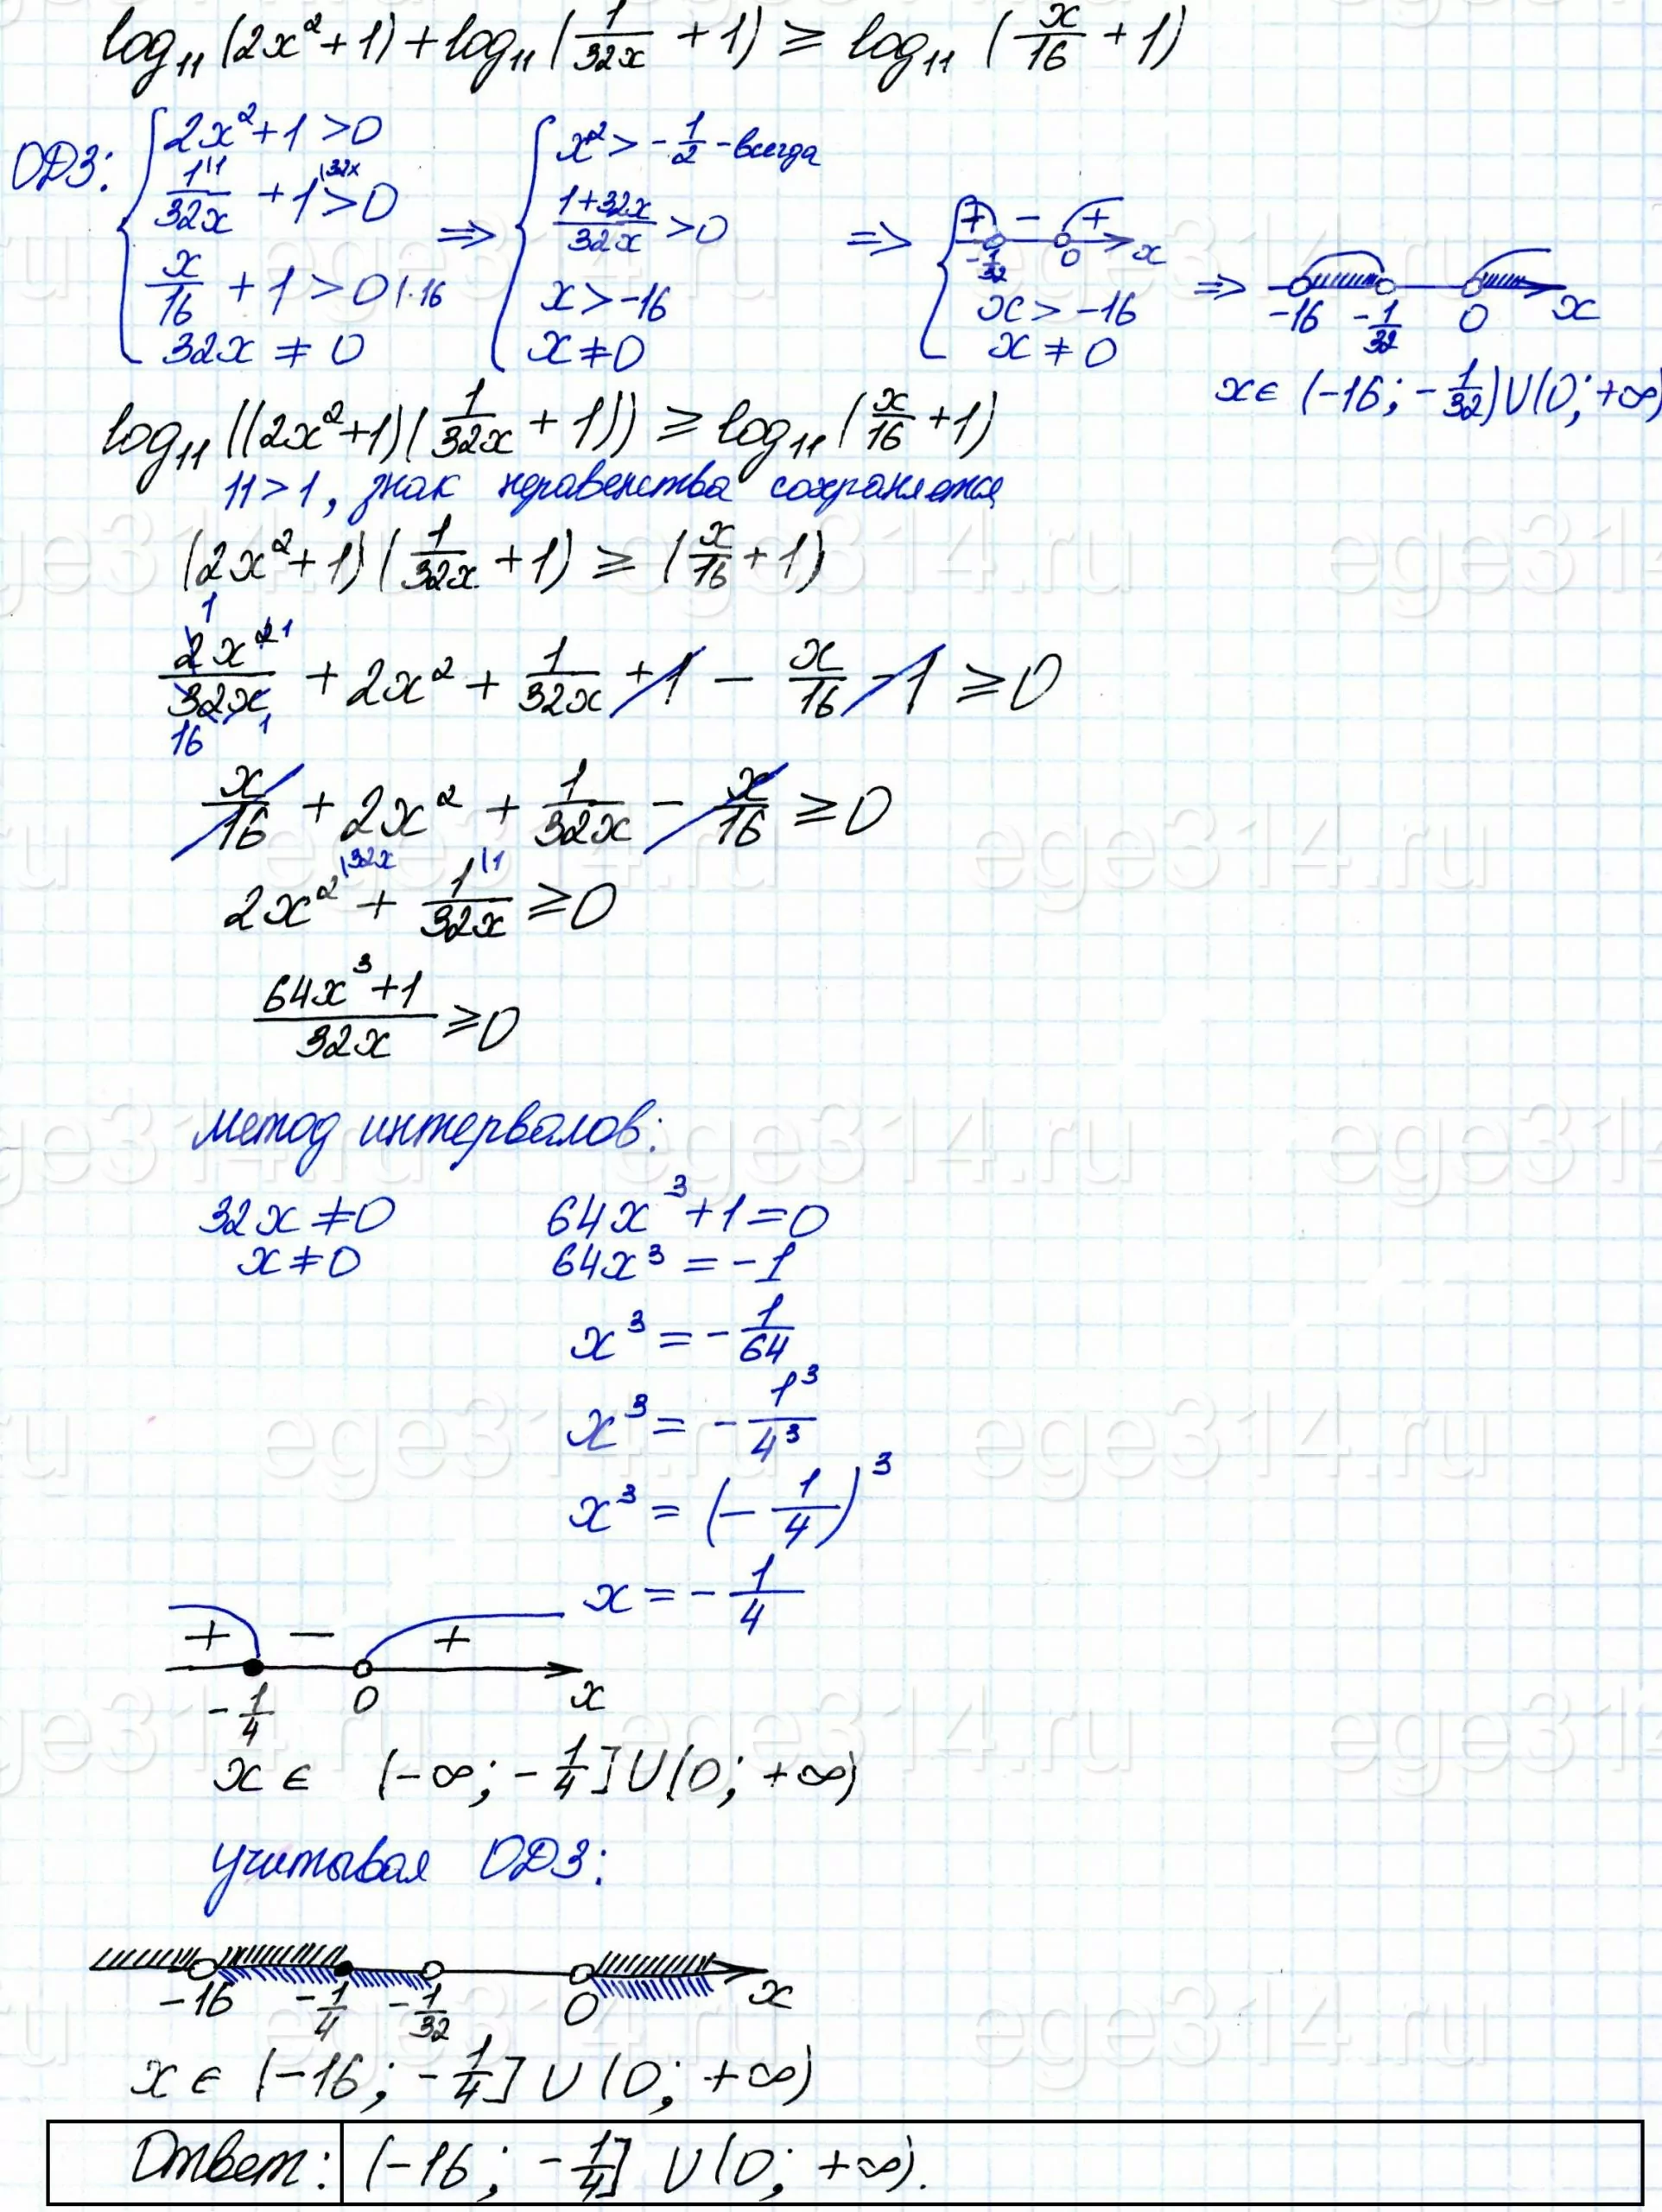 log₁₁ (2x²+1) + log₁₁ (1/32x + 1) ≥ log₁₁ (x/16 + 1)
ОДЗ: { 2x²+1 > 0 ; 1\1/32x + 1\32x > 0 ; x/16 + 1 > 0 |·16 ; 32x ≠ 0 ⇒ { x² > -1/2 - всегда ; (1+32x)/32x > 0 ; x > -16 ; x ≠ 0 ⇒ { + -1/32 - 0 + x ; x > -16 ; x ≠ 0 ⇒ -16 -1/32 0 x
x ∈ (-16; -1/32) ∪ (0; +∞)
log₁₁ ((2x²+1)(1/32x + 1)) ≥ log₁₁ (x/16 + 1)
11 > 1, знак неравенства сохраняется
(2x²+1)(1/32x + 1) ≥ (x/16 + 1)
2x²/32x + 2x² + 1/32x + 1 - x/16 - 1 ≥ 0
1 1 16 1
x/16 + 2x² + 1/32x - x/16 ≥ 0
2x² \32x + 1\1/32x ≥ 0
(64x³+1)/32x ≥ 0
метод интервалов:
32x ≠ 0 64x³+1 = 0
x ≠ 0 64x³ = -1
x³ = -1/64
x³ = -1³/4³
x³ = (-1/4)³
x = -1/4
+ - +
-1/4 0 x
x ∈ (-∞; -1/4] ∪ (0; +∞)
учитывая ОДЗ:
-16 -1/4 -1/32 0 x
x ∈ (-16; -1/4] ∪ (0; +∞)
Ответ: (-16; -1/4] ∪ (0; +∞).
ege314.ru